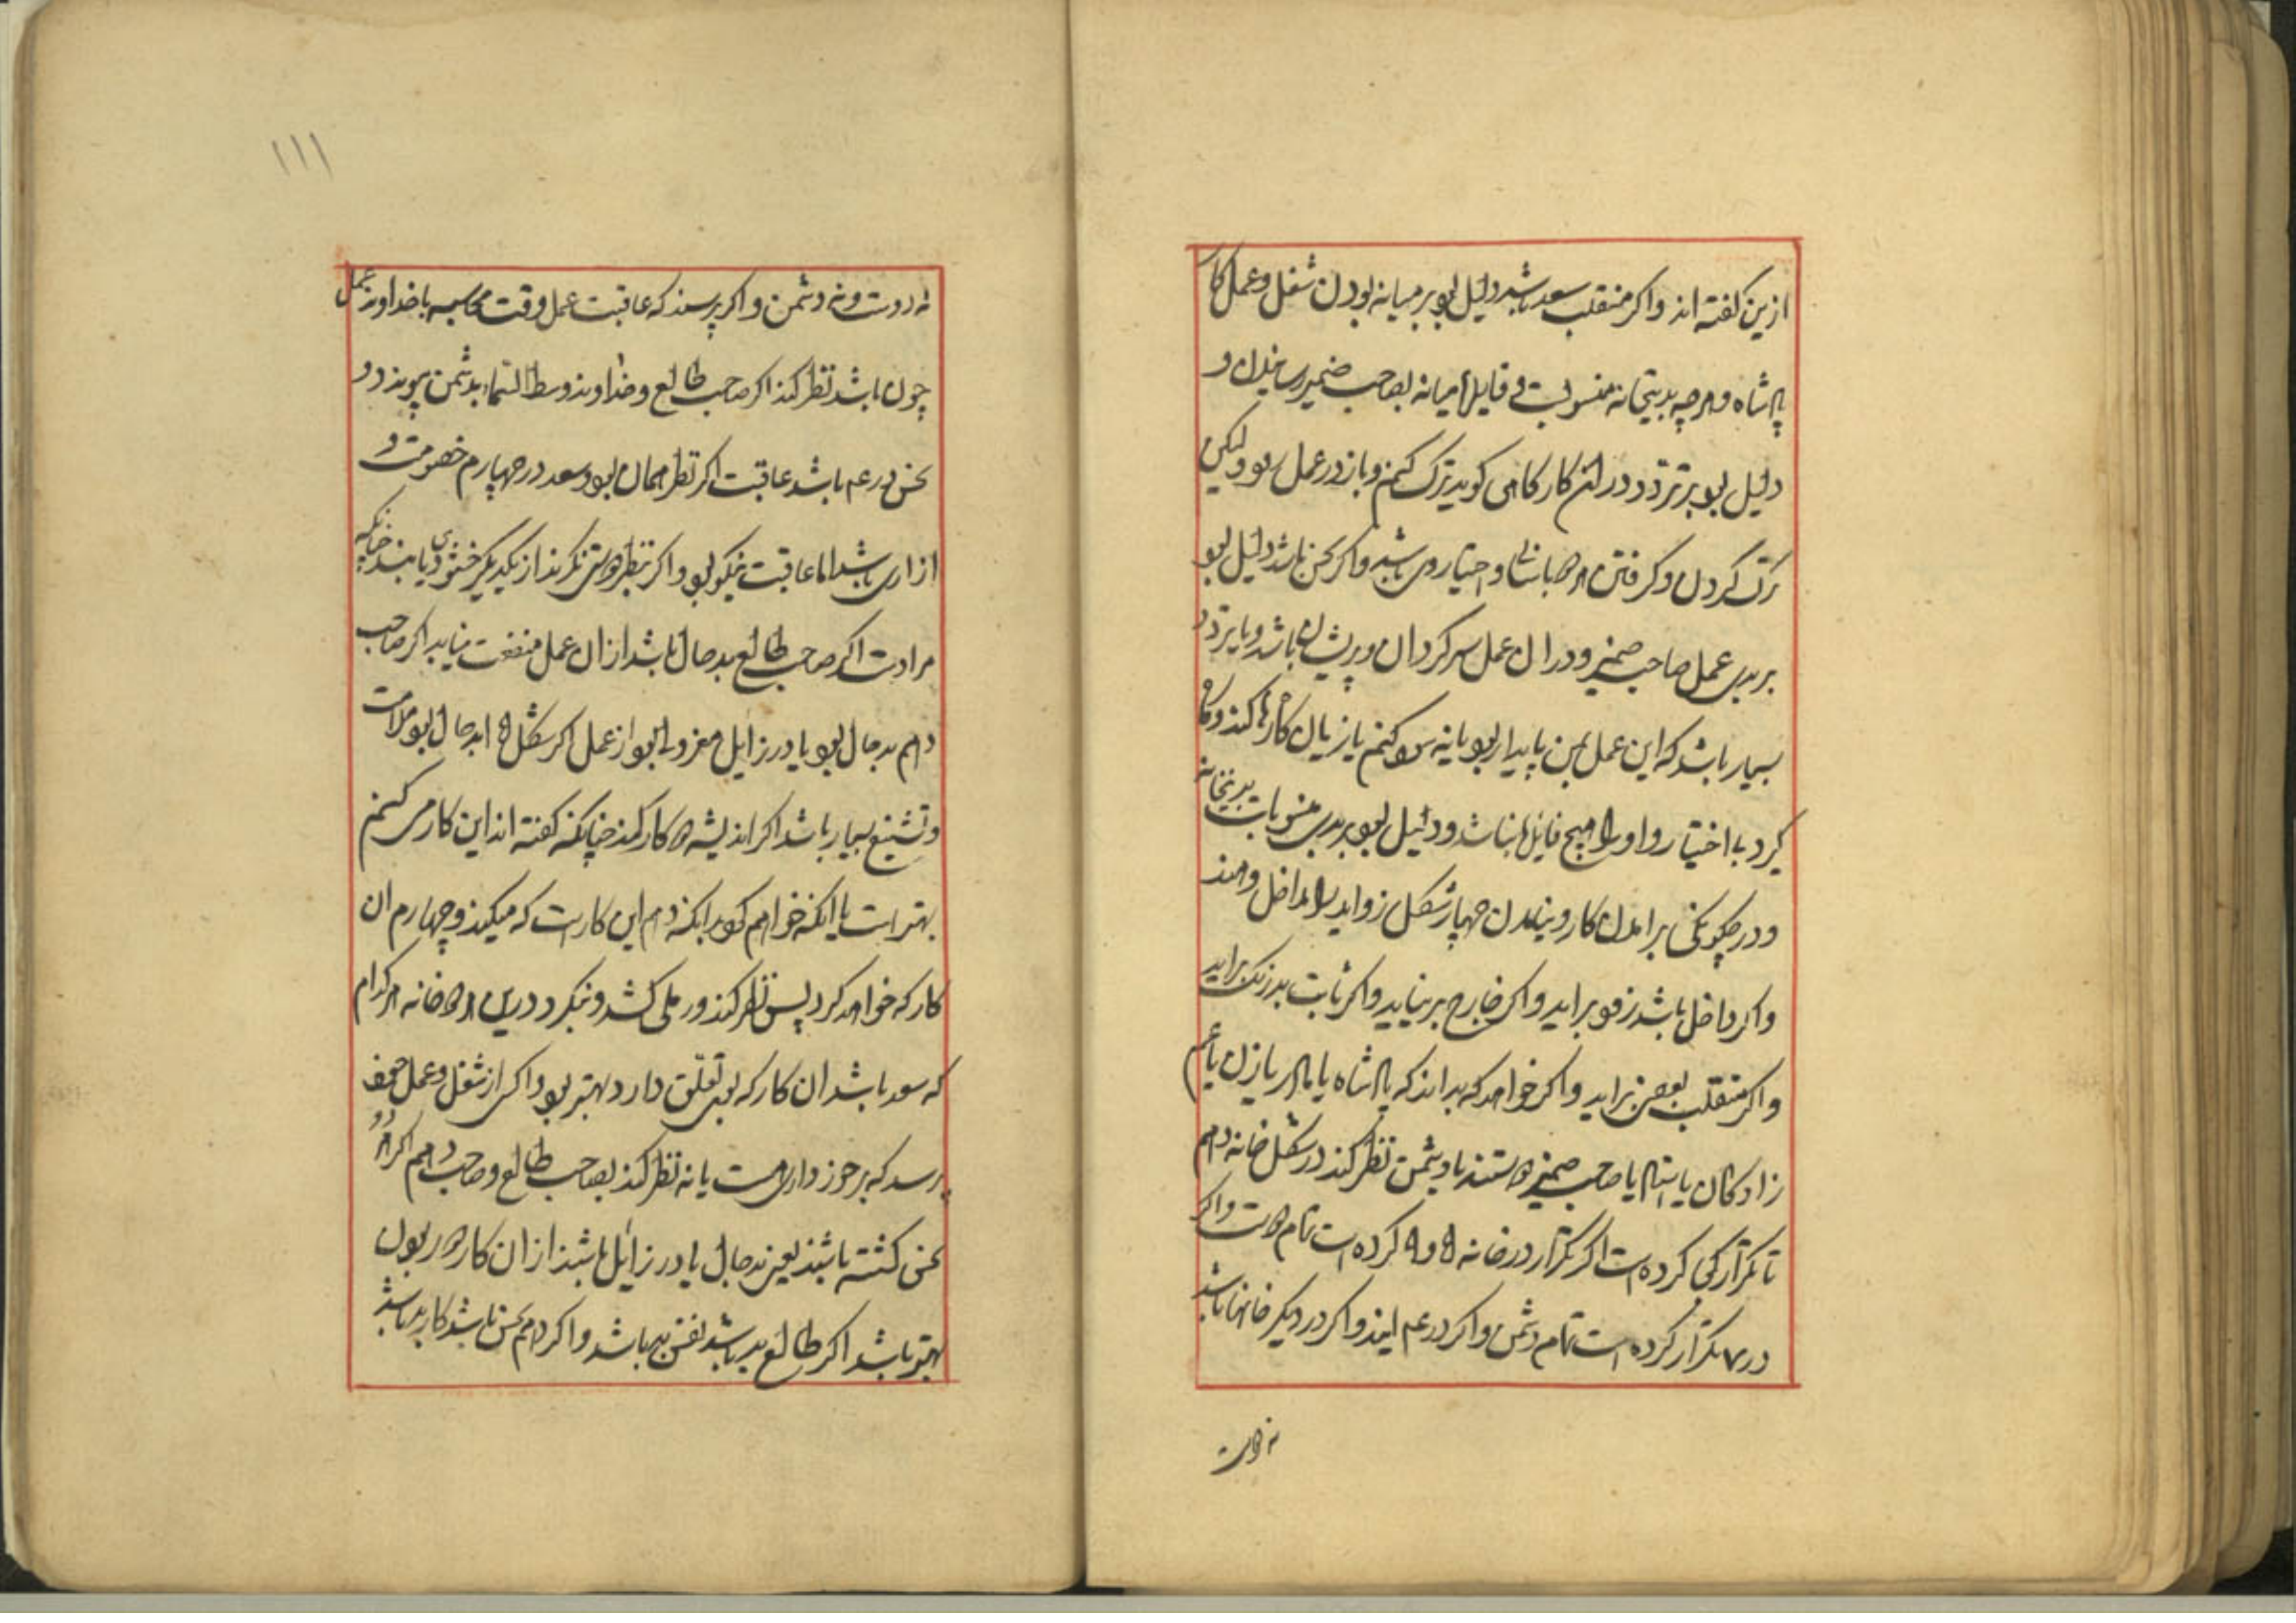 ازین کفته اند واکر منقلب سعد باشد دلیل بود بر میانه بودن شغل و عمل کار
پادشاه وهرچه بدیتخانه منسوبست فایدها میانه بصاحب ضمیر رسانیدن و
دلیل بود بر تردد در ان کار کاهی کوید ترک کنم و باز در عمل رود ولیکن
ترک کردن و کرفتن هردو باسانی و اختیار وی باشد واکر نحس باشد دلیل بود
بر بدی عمل صاحب ضمیر و در ان عمل سرکردان و پریشان باشد و با تردد
بسیار باشد که این عمل بمن پایدار بود یا نه سود کنم یا زیان کارها کند و کار
کیرد بی اختیار و او را هیچ فایده نباشد و دلیل بود بر بدی منسوبات بدینخانه
و در چکونکی بر امدن کار و نیامدن چهار شکل زواید را داخل
واکر داخل باشد زود براید واکر خارج بر نیاید واکر ثابت بدرنک براید
واکر منقلب بعضی براید واکر خواهد که بداند که پادشاه یا مادر یا زن یا عم
زادکان یا استاد یا صاحب ضمیر دوستند یا دشمن نظر کند در شکل خانه دهم
تا تکرار کی کرده است اکر تکرار در خانه ۵ و ۹ کرده است تمام دوست واکر
در ۷ تکرار کرده است تمام دشمن واکر در ایند واکر در دیکر خانها باشد
نه دوست
۱۱۱
نه دوست و نه دشمن واکر پرسند که عاقبت عمل وقت محاسبه با خداوند عمل
چون باشد نظر کند اکر صاحب طالع و خداوند وسط السماء بدشمن پیوندد و
نحس در باشد عاقبت اکر نظر همان بود و سعد در چهارم خصومت و
ازاری باشد اما عاقبت نیکو بود واکر بنظر دوستی نکرند از یکدیکر خشنودی یابند چنانکه
مرادست اکر صاحب طالع بد حال باشد از ان عمل منفعت نیابد اکر صاحب
دهم بد حال بود یا در زایل معزولی بود از عمل اکر شکل ۵ بد حال بود ملامت
و تشنیع بسیار باشد اکر اندیشه دو کار کند چنانکه کفته اند این کار می کنم
بهتر است یا انکه خواهم کرد انکه دهم این کارست که میکند و چهارم ان
کار که خواهد کرد پس نظر کند و رملی کشد و بنکرد درین هر دو خانه هر کدام
که سعد باشد ان کار که بوی تعلق دارد بهتر بود واکر از شغل و عمل خود
پرسد که برخورداری هست یا نه نظر کند بصاحب طالع و صاحب دهم اکر هر دو
نحس کشته باشند یعنی بد حال یا در زایل باشند از ان کار دور بودن
بهتر باشد اکر طالع بد باشد نفس بد باشد واکر دهم نحس باشد کار بد باشد